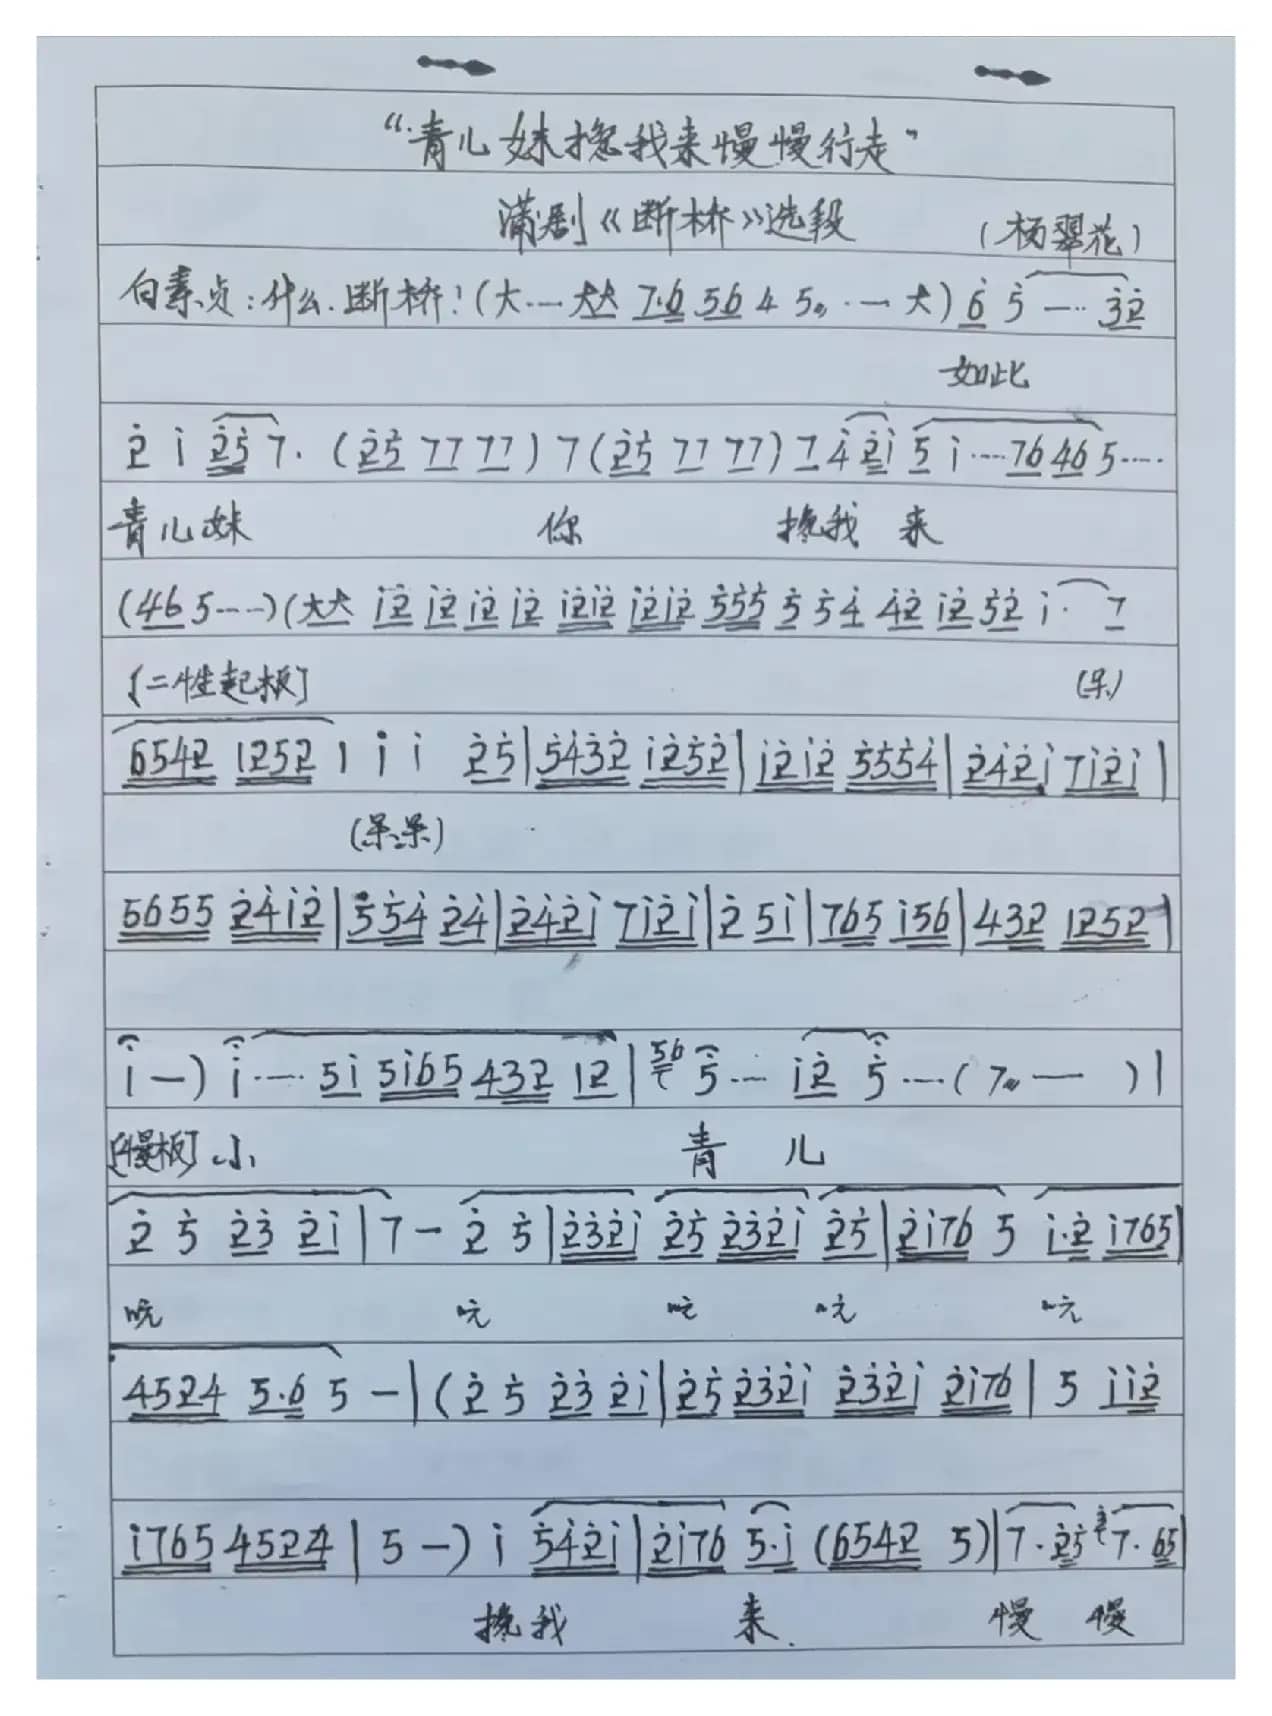 “青儿妹搀我来慢慢行走”
蒲剧《断桥》选段 (杨翠花)
白素贞:什么.断桥!(大…大大 7·6 56 4 5〃·一大) 6̇ 5̇ —… 3̇2̇
如此
2̇ 1̇ 2̇5̇ 7. (2̇5̇ 77 77) 7 (2̇5̇ 77 77) 7 4̇ 2̇1̇ 5̇ 1̇ ….76 46 5….
青儿妹 你 搀我 来
(46 5…)(大大 1̇2̇ 1̇2̇ 1̇2̇ 1̇2̇ 1̇2̇1̇2̇ 1̇2̇1̇2̇ 5̇5̇5̇ 5̇ 5̇4̇ 4̇2̇ 1̇2̇ 5̇2̇ 1̇· 7
[二性起板] (呆)
6542 1252 1 1̇ 1̇ 2̇5̇|5̇4̇3̇2̇ 1̇2̇5̇2̇|1̇2̇1̇2̇ 5̇5̇5̇4̇|2̇4̇2̇1̇ 71̇2̇1̇|
(呆呆)
5655 2̇4̇1̇2̇|5̇5̇4̇ 2̇4̇|2̇4̇2̇1̇ 71̇2̇1̇|2̇ 51̇|765 1̇56|432 1252|
1̇ —) 1̇ …. 51̇ 51̇65 432 12|56 5̇ … 1̇2̇ 5̇ …. (7〃 — )|
[慢板] 小 青 儿
2̇ 5̇ 2̇3̇ 2̇1̇|7 — 2̇ 5̇|2̇3̇2̇1̇ 2̇5̇ 2̇3̇2̇1̇ 2̇5̇|2̇1̇76 5 1̇·2̇ 1̇765|
吭 吭 吭 吭 吭
4524 5·6 5 —|(2̇ 5̇ 2̇3̇ 2̇1̇|2̇5̇ 2̇3̇2̇1̇ 2̇3̇2̇1̇ 2̇1̇76|5 1̇1̇2̇
1̇765 4524|5 —) 1̇ 5̇4̇2̇1̇|2̇1̇76 5·1̇ (6542 5)|7·2̇5̇ 7·65|
搀我 来 慢 慢